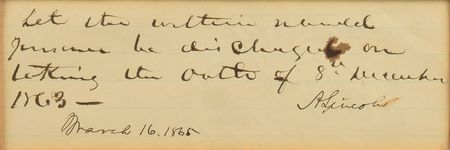 Let the within named
prisoner be discharged on
taking the oath of 8th December
1863 —
A. Lincoln
March 16. 1865